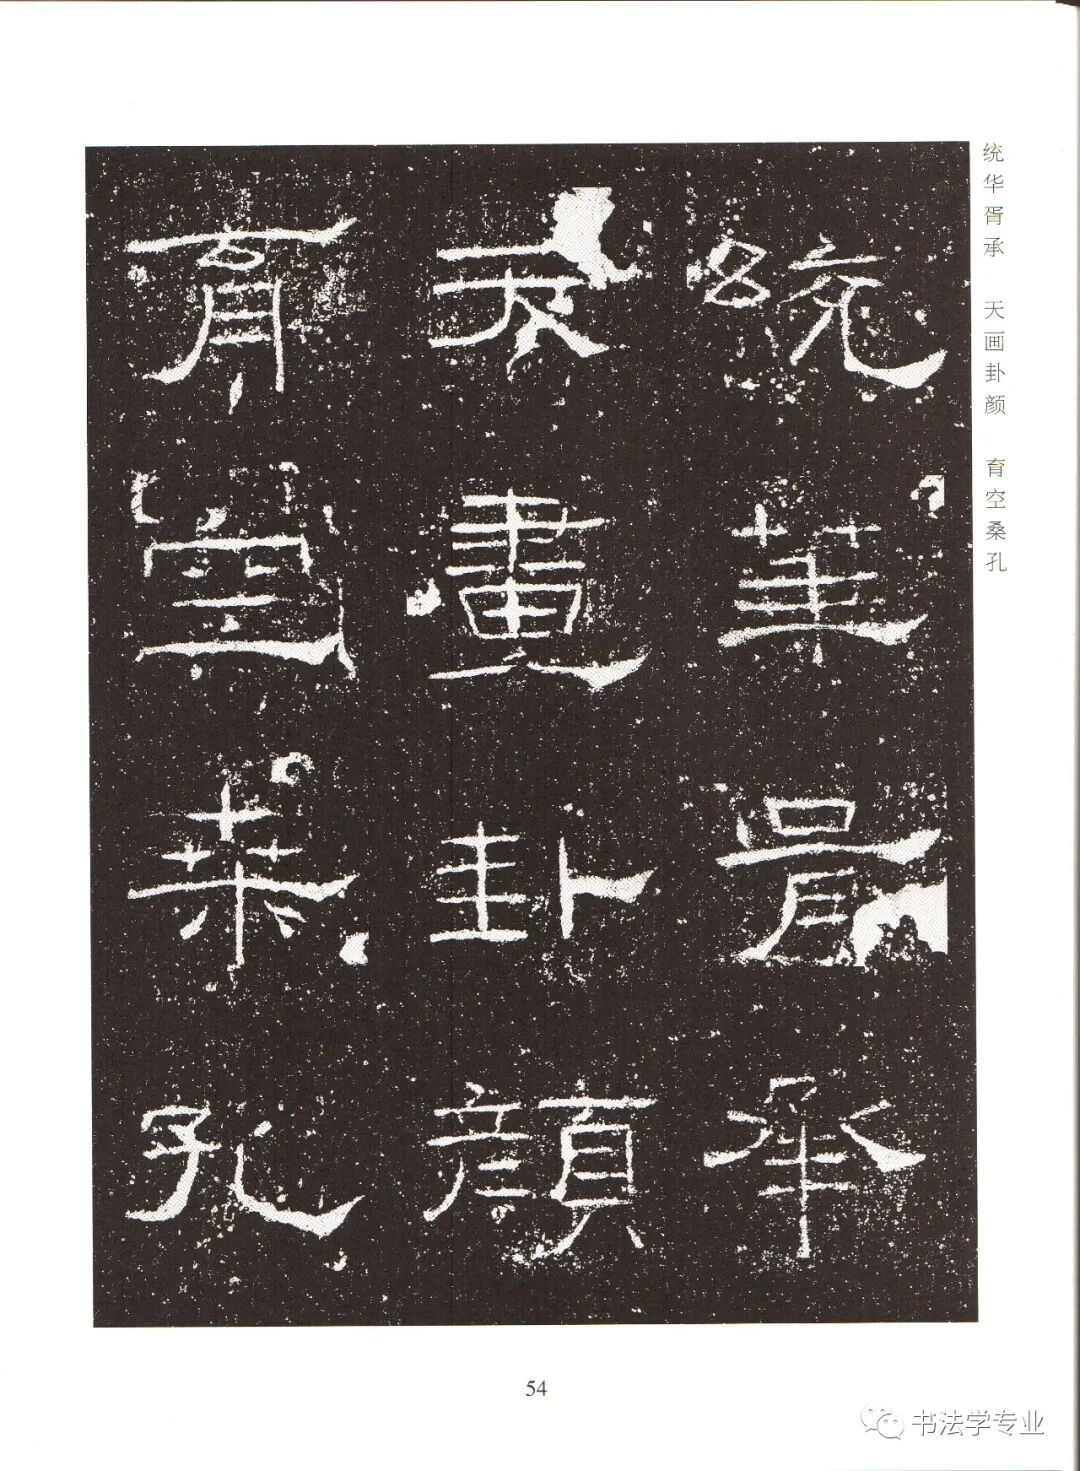 统华胥承 天画卦颜 育空桑孔
統華胥承
天畫卦顏
育空桑孔
54
书法学专业